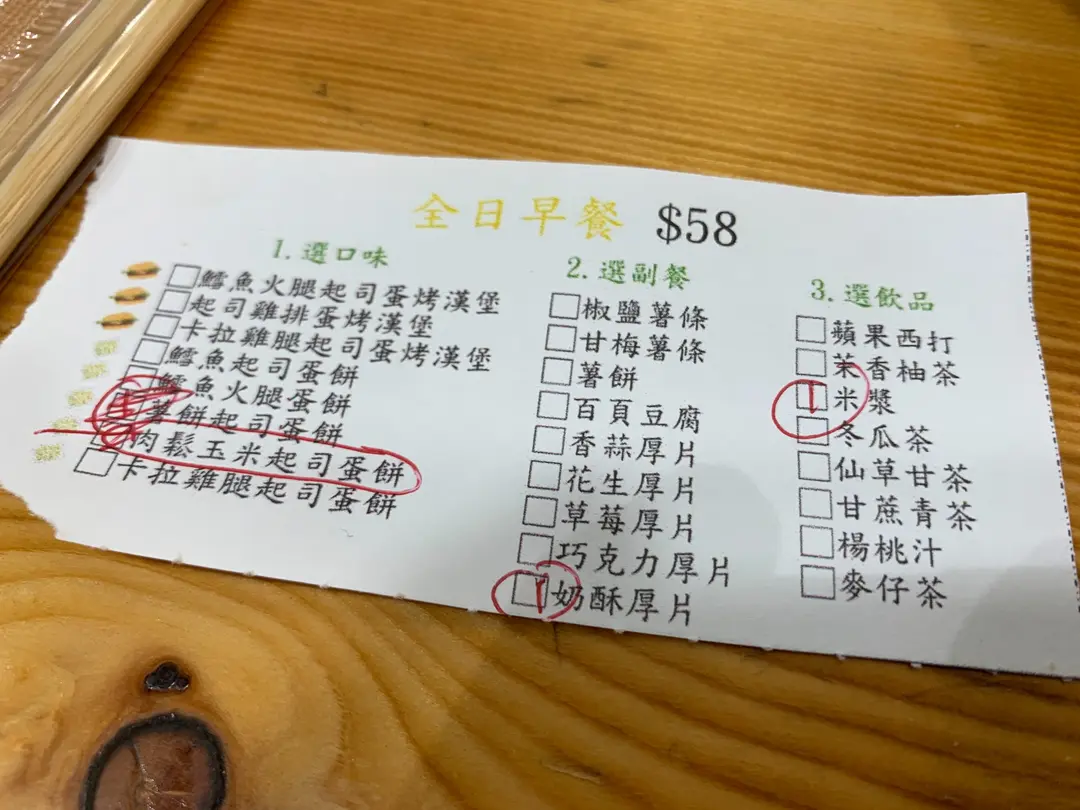 全日早餐 $58
1.選口味
鱈魚火腿起司蛋烤漢堡
起司雞排蛋烤漢堡
卡拉雞腿起司蛋烤漢堡
鱈魚起司蛋餅
鱈魚火腿蛋餅
薯餅起司蛋餅
肉鬆玉米起司蛋餅
卡拉雞腿起司蛋餅
2.選副餐
椒鹽薯條
甘梅薯條
薯餅
百頁豆腐
香蒜厚片
花生厚片
草莓厚片
巧克力厚片
1 奶酥厚片
3.選飲品
蘋果西打
茉香柚茶
1 米漿
冬瓜茶
仙草甘茶
甘蔗青茶
楊桃汁
麥仔茶